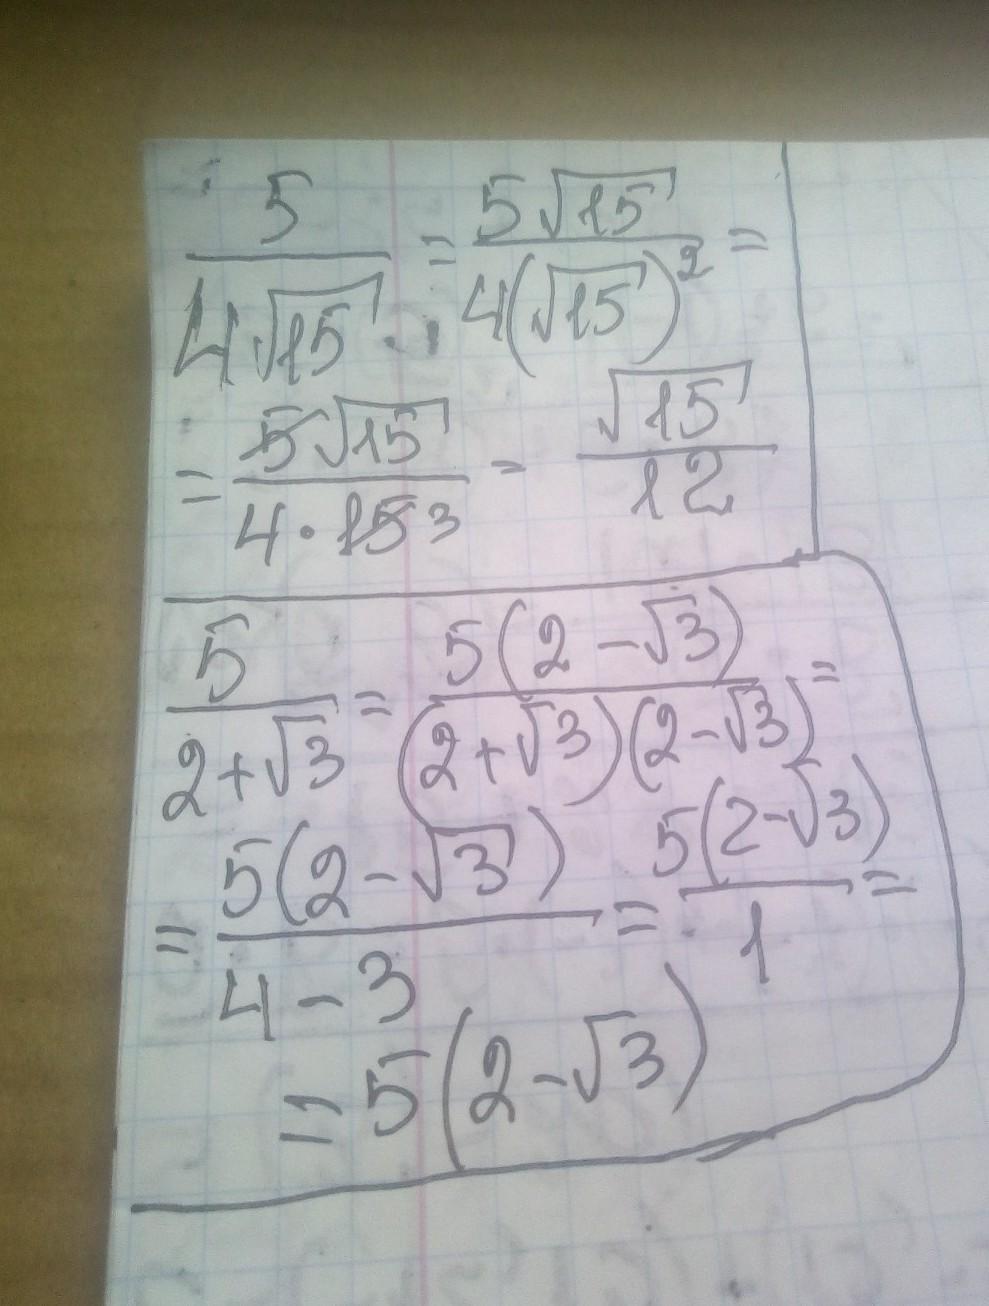 5/(4√15) = 5√15/(4(√15)²) =
= 5√15/(4·15 3) - √15/12
5/(2+√3) = 5(2-√3)/((2+√3)(2-√3)) =
= 5(2-√3)/(4-3) = 5(2-√3)/1 =
= 5(2-√3)